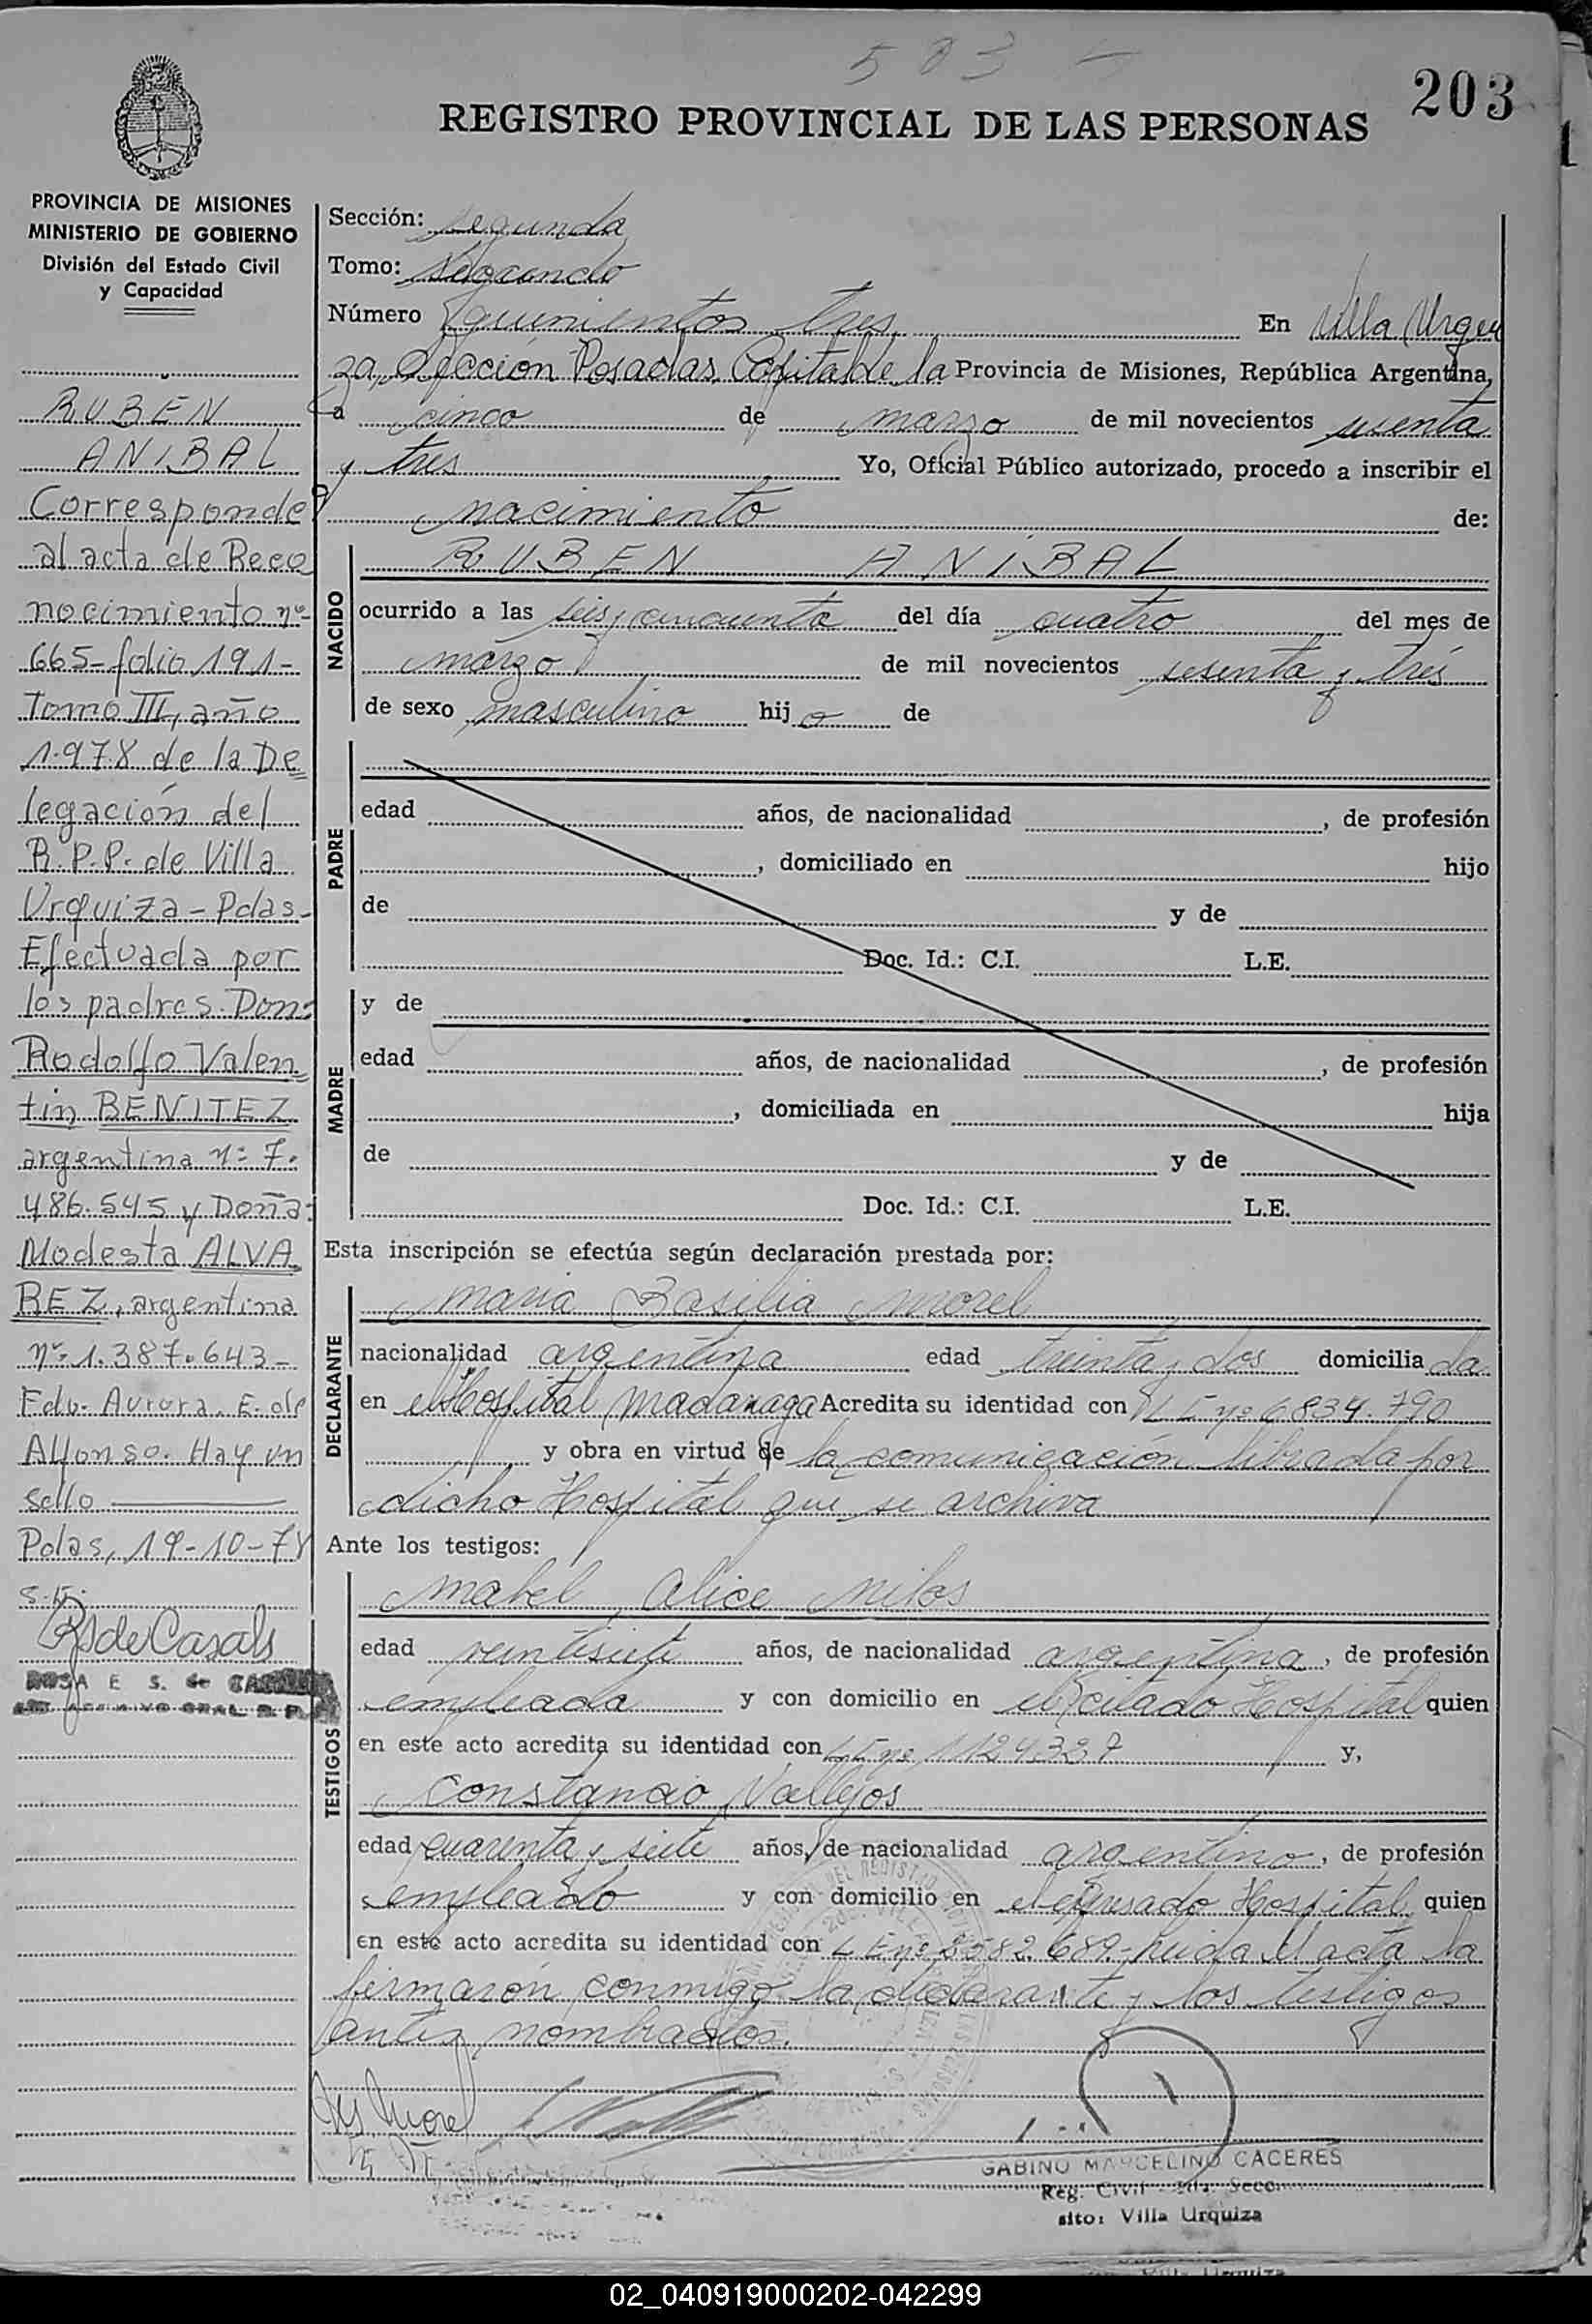 503
203
REGISTRO PROVINCIAL DE LAS PERSONAS
PROVINCIA DE MISIONES
MINISTERIO DE GOBIERNO
División del Estado Civil
y Capacidad
RUBEN
ANIBAL
Corresponde
al acta de Reco
nocimiento nº
665-folio 191-
Tomo III, año
1.978 de la De
legación del
R.P.P. de Villa
Urquiza-Pdas-
Efectuada por
los padres. Don:
Rodolfo Valen
tin BENITEZ
argentina nº 7.
486.545 y Doña:
Modesta ALVA
REZ, argentina
nº 1.387.643-
Fdo. Aurora. E. de
Alfonso. Hay un
sello
Pdas, 19-10-78
RSdeCasals
ROSA E S. de
Sección: segunda
Tomo: segundo
Número quinientos tres En Villa Urqui
za, Sección Posadas Capital de la Provincia de Misiones, República Argentina,
a cinco de marzo de mil novecientos sesenta
y tres Yo, Oficial Público autorizado, procedo a inscribir el
nacimiento de:
NACIDO
RUBEN ANIBAL
ocurrido a las seis y cincuenta del día cuatro del mes de
marzo de mil novecientos sesenta y tres
de sexo masculino hijo de
PADRE
edad años, de nacionalidad , de profesión
, domiciliado en hijo
de y de
Doc. Id.: C.I. L.E.
MADRE
y de
edad años, de nacionalidad , de profesión
, domiciliada en hija
de y de
Doc. Id.: C.I. L.E.
Esta inscripción se efectúa según declaración prestada por:
DECLARANTE
Maria Basilia Morel
nacionalidad argentina edad treinta y dos domiciliada
en el Hospital Madariaga Acredita su identidad con L E nº 6834.790
y obra en virtud de la comunicación librada por
dicho Hospital que se archiva
Ante los testigos:
TESTIGOS
Mabel Alice Milos
edad veintisiete años, de nacionalidad argentina, de profesión
empleada y con domicilio en el citado Hospital quien
en este acto acredita su identidad con L E nº 1124327 y,
Constancio Vallejos
edad cuarenta y siete años, de nacionalidad argentino, de profesión
empleado y con domicilio en el expresado Hospital quien
en este acto acredita su identidad con L E nº 5582.689.- leida el acta la
firmaron conmigo la declarante y los testigos
antes nombrados.
Morel
GABINO MARCELINO CACERES
Reg. Civil Secc.
sito: Villa Urquiza
02_040919000202-042299